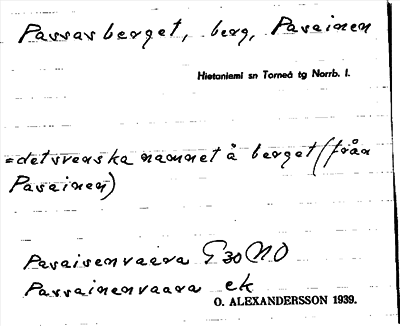 Passavberget, berg, Pasainen
Hietaniemi sn Torneå tg Norrb. l.
= det svenska namnet å berget (från
Pasainen)
Pasaisenvaara G 30 NO
Passainenvaara ek
O. ALEXANDERSSON 1939.